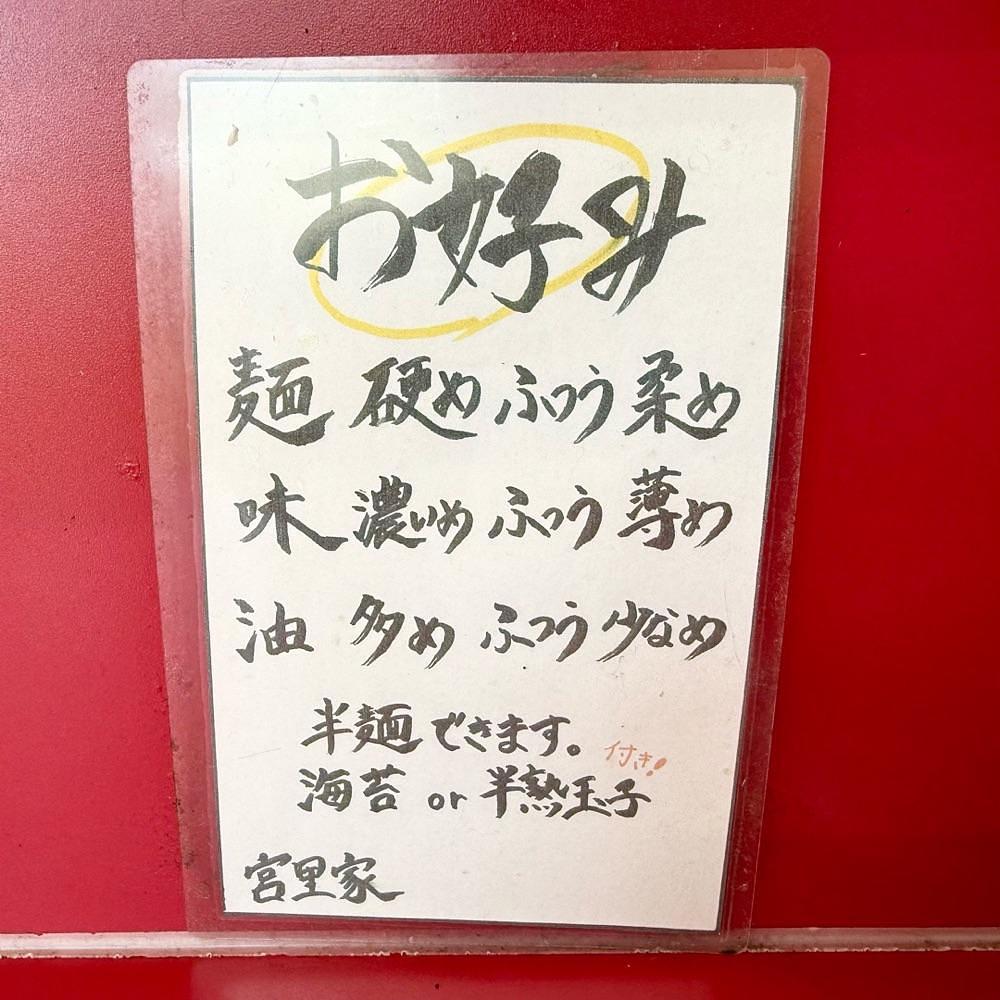 お好み
麺 硬め ふつう 柔め
味 濃いめ ふつう 薄め
油 多め ふつう 少なめ
半麺できます。
付き!
海苔 or 半熟玉子
宮里家